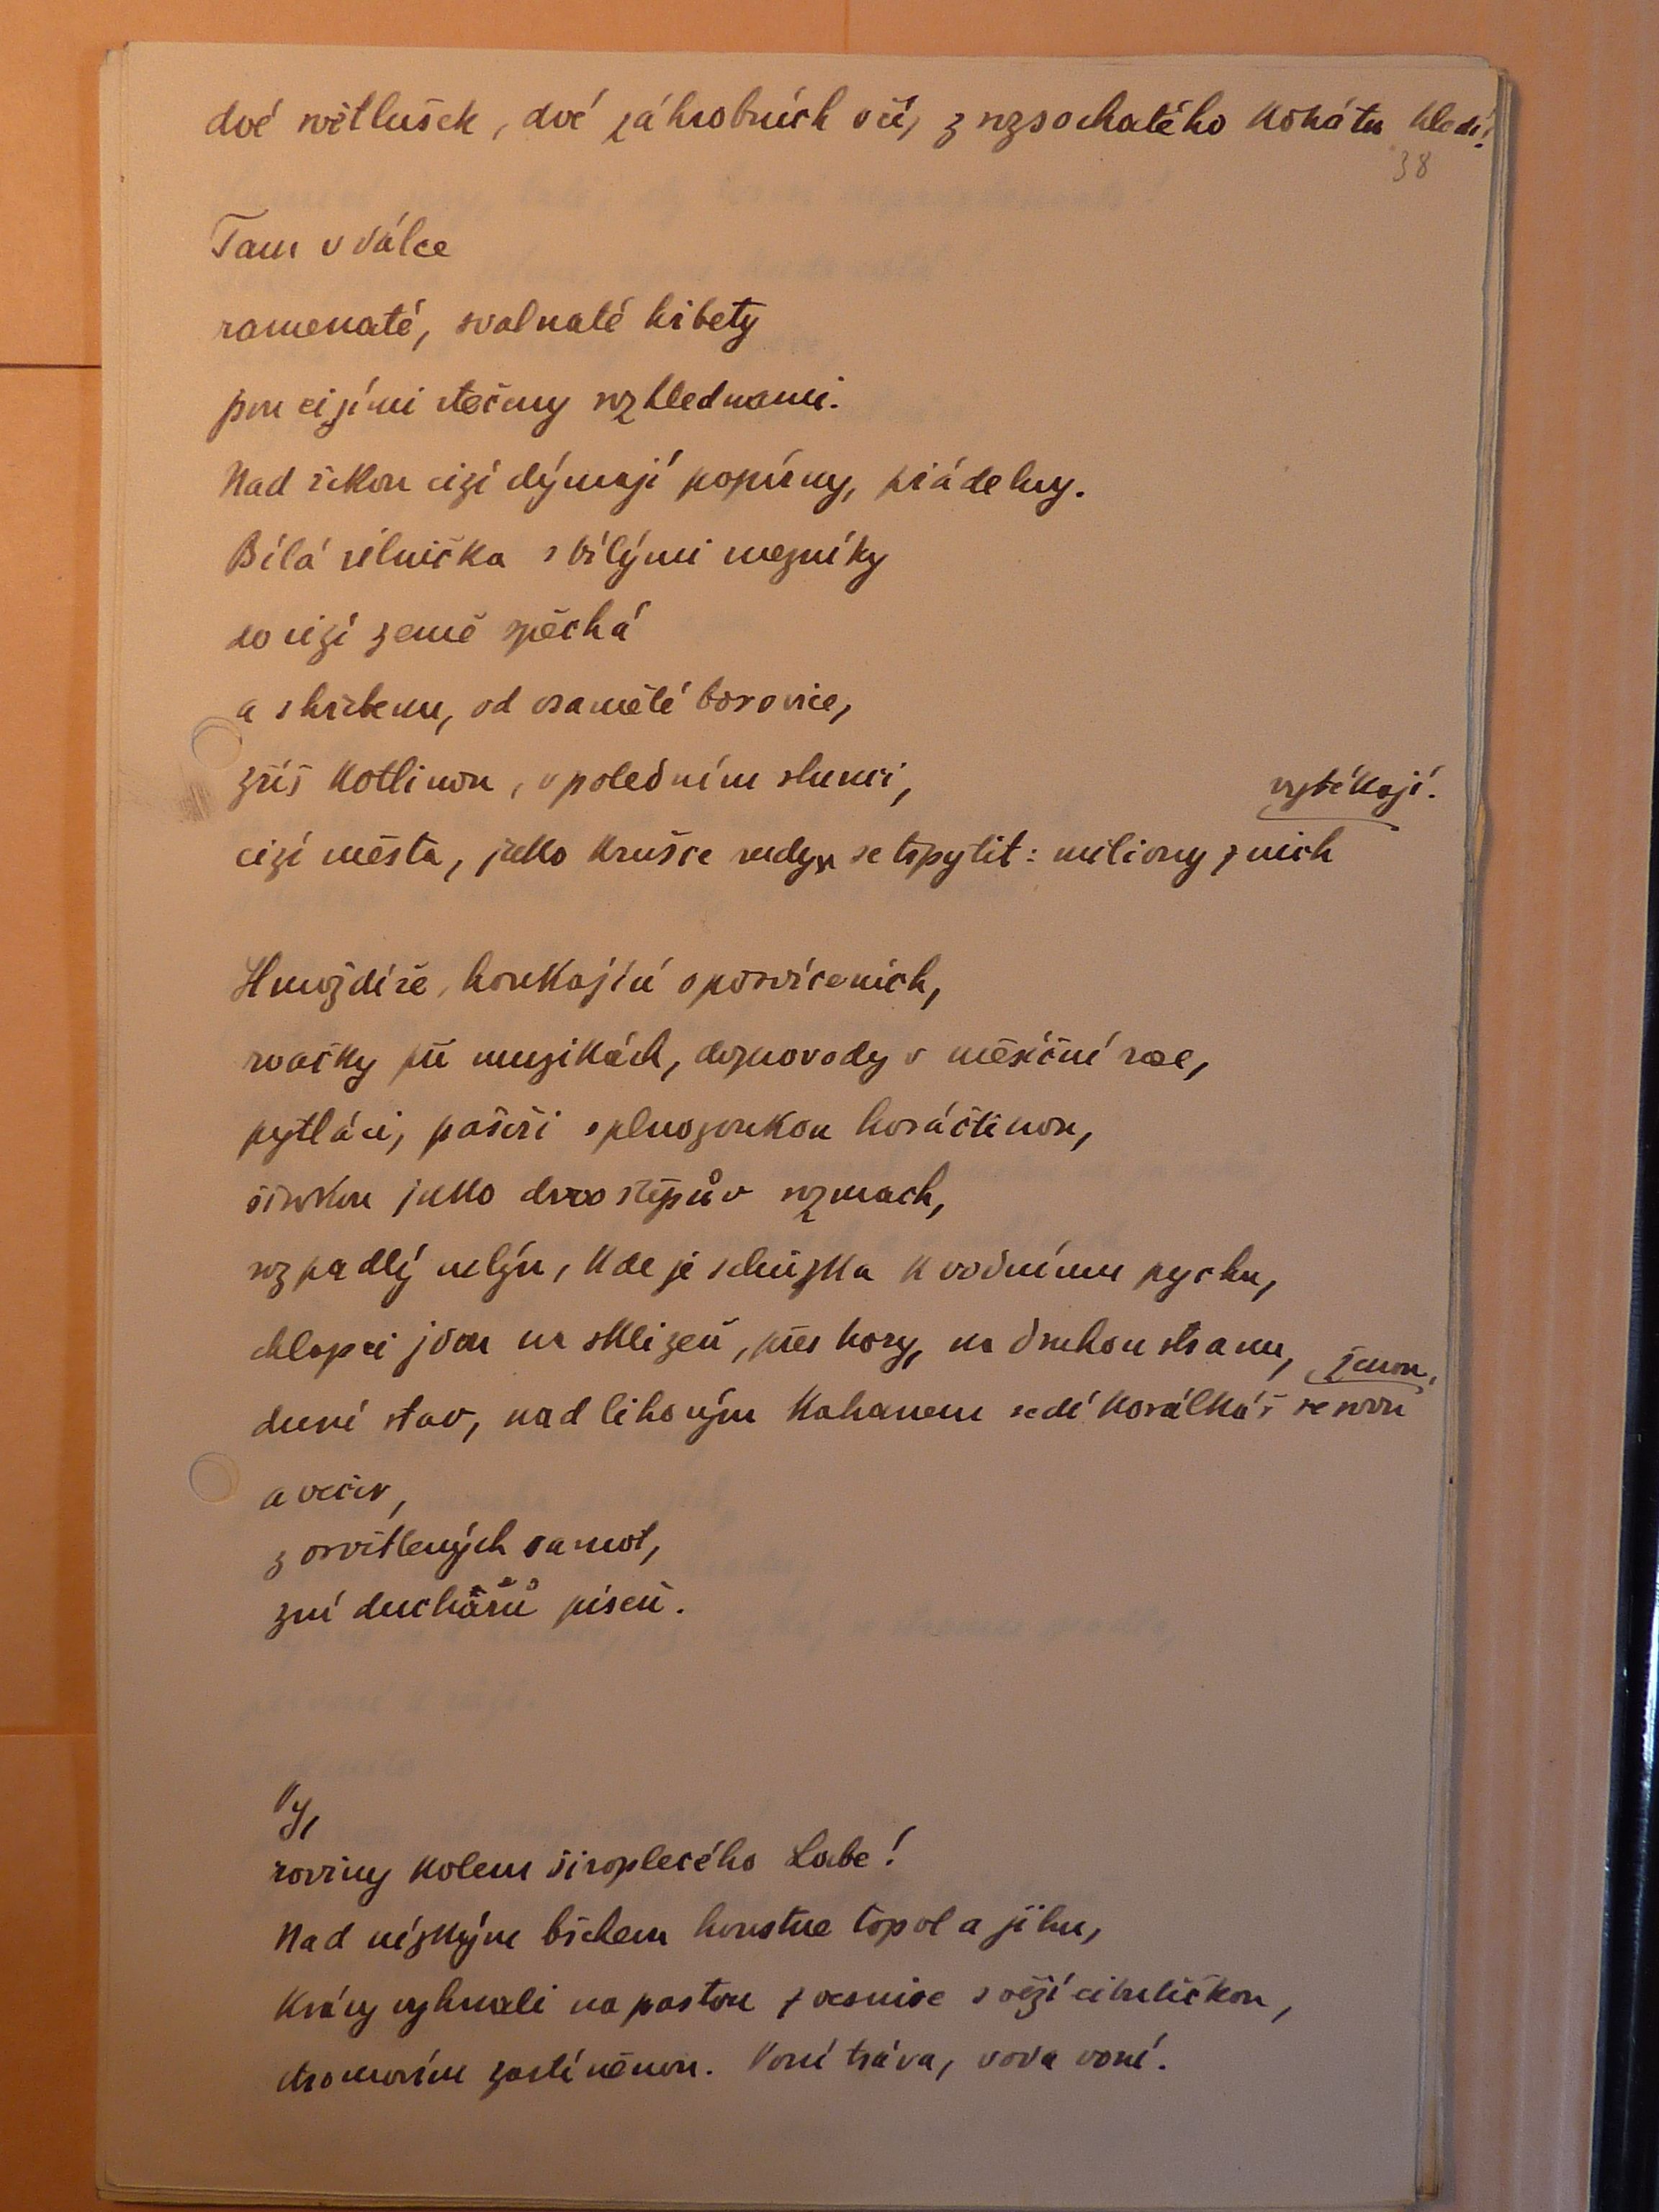 dvé světlušek, dvé záhrobních očí, z rozsochatého kokátu hledí!
38
Tam v dálce
ramenaté, svalnaté hřbety
jsou cizími stočeny rozhlednami.
Nad řekou cizí dýmají papírny, přádelny.
Bílá silnička s bílými mezníky
do cizí země spěchá
a s hřebenu, od osamělé borovice,
zříš kotlinou, v poledním slunci,
vytékají.
cizí města, jako krušce rudy, se třpytit: miliony z nich
Hmoždíře, houkající o posvíceních,
rvačky při muzikách, doprovody v měsíční rose,
pytláci, pašeři s plnozvukou horáčtinou,
širokou jako dvou štěpův rozmach,
rozpadlý mlýn, kde je schůzka k vodnímu pychu,
chlapci jdou na sklizeň, přes hory, na druhou stranu,
ženou,
duní stav, nad lihovým kahanem sedí korálkář se svou
a večer,
z osvětlených samot,
zní duchařů píseň.
Vy,
roviny kolem široplecého Labe!
Nad nízkým břehem houstne topol a jíhu,
Krávy vyhnali na pastvu z vesnice s věží cibuličkou,
stromovím zastíněnou. Voní tráva, voda voní.